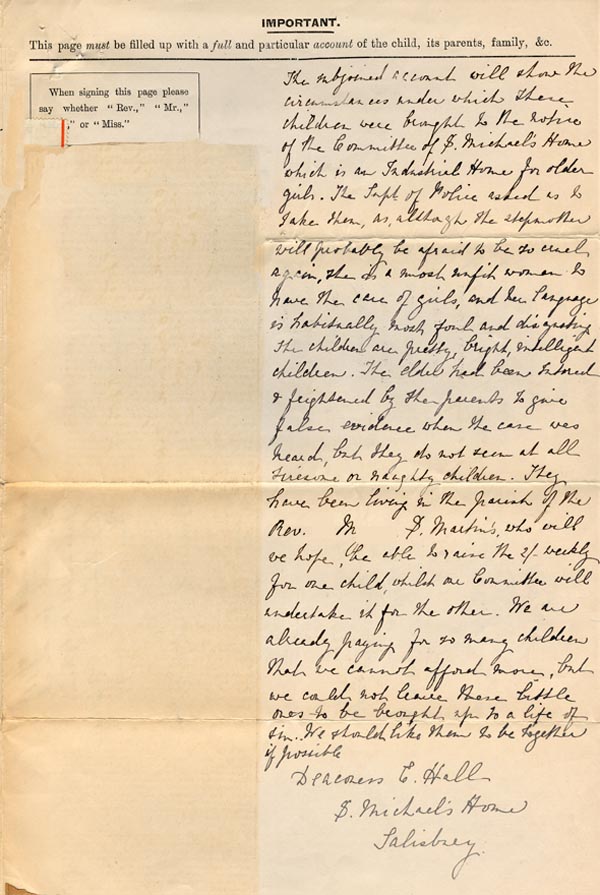 IMPORTANT.
This page must be filled up with a full and particular account of the child, its parents, family, &c.
When signing this page please
say whether "Rev.," "Mr.,"
," or "Miss."
The subjoined account will show the
circumstances under which these
children were brought to the notice
of the Committee of S. Michael's Home
which is an Industrial Home for older
girls. The Supt of Police asked us to
take them, as, although the stepmother
will probably be afraid to be so cruel
again, she is a most unfit woman to
have the care of girls, and her language
is habitually most foul and disgusting
The children are pretty, bright, intelligent
children. The elder had been tutored
& frightened by the parents to give
false evidence when the case was
heard, but they do not seem at all
tiresome or naughty children. They
have been living in the parish of the
Rev. M S. Martin's, who will
we hope, be able to raise the 2/- weekly
for one child, whilst our Committee will
undertake it for the other. We are
already paying for so many children
that we cannot afford more, but
we could not leave these little
ones to be brought up to a life of
sin. We should like them to be together
if possible
Deaconess E. Hall
S. Michael's Home
Salisbury.